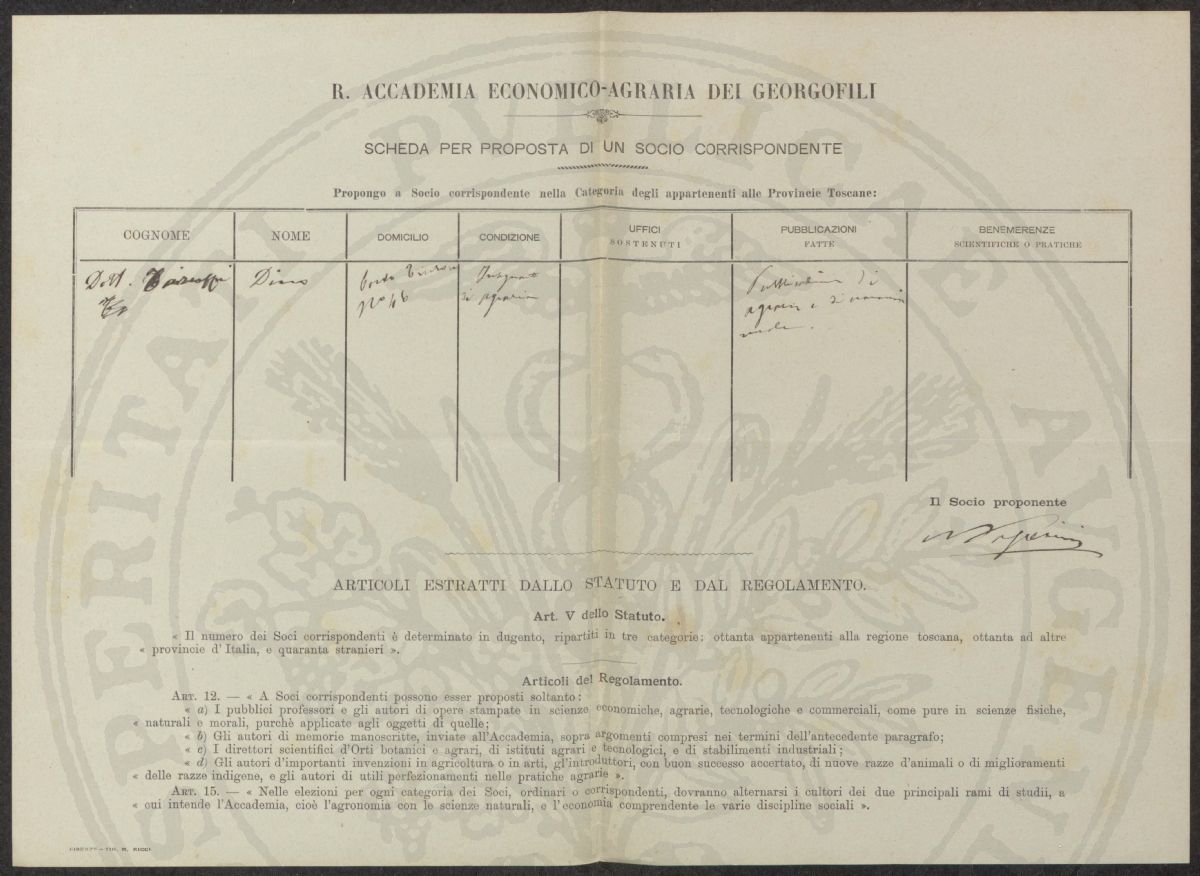 R. ACCADEMIA ECONOMICO-AGRARIA DEI GEORGOFILI
SCHEDA PER PROPOSTA DI UN SOCIO CORRISPONDENTE
Propongo a Socio corrispondente nella Categoria degli appartenenti alle Provincie Toscane:
COGNOME
NOME
DOMICILIO
CONDIZIONE
UFFICI
SOSTENUTI
PUBBLICAZIONI
FATTE
BENEMERENZE
SCIENTIFICHE O PRATICHE
Dott.
Dino
N° 46
di agraria
di
agraria e di
Il Socio proponente
ARTICOLI ESTRATTI DALLO STATUTO E DAL REGOLAMENTO.
Art. V dello Statuto.
« Il numero dei Soci corrispondenti è determinato in dugento, ripartiti in tre categorie: ottanta appartenenti alla regione toscana, ottanta ad altre
« provincie d'Italia, e quaranta stranieri ».
Articoli del Regolamento.
ART. 12. — « A Soci corrispondenti possono esser proposti soltanto:
« a) I pubblici professori e gli autori di opere stampate in scienze economiche, agrarie, tecnologiche e commerciali, come pure in scienze fisiche,
« naturali e morali, purchè applicate agli oggetti di quelle;
« b) Gli autori di memorie manoscritte, inviate all'Accademia, sopra argomenti compresi nei termini dell'antecedente paragrafo;
« c) I direttori scientifici d'Orti botanici e agrari, di istituti agrari e tecnologici, e di stabilimenti industriali;
« d) Gli autori d'importanti invenzioni in agricoltura o in arti, gl'introduttori, con buon successo accertato, di nuove razze d'animali o di miglioramenti
« delle razze indigene, e gli autori di utili perfezionamenti nelle pratiche agrarie ».
ART. 15. — « Nelle elezioni per ogni categoria dei Soci, ordinari o corrispondenti, dovranno alternarsi i cultori dei due principali rami di studii, a
« cui intende l'Accademia, cioè l'agronomia con le scienze naturali, e l'economia comprendente le varie discipline sociali ».
FIRENZE — TIP. M. RICCI.